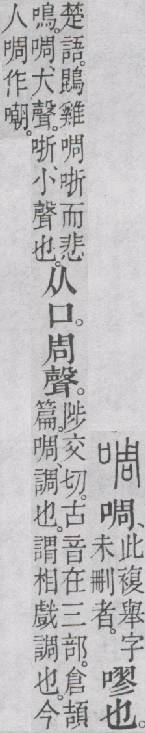 啁、此複舉字
未刪者。
嘐也。
楚語。鵾雞啁哳而悲
鳴。啁、大聲。哳、小聲也。
从口。周聲。
陟交切。古音在三部。倉頡
篇。啁、調也。謂相戲調也。今
人啁作嘲。